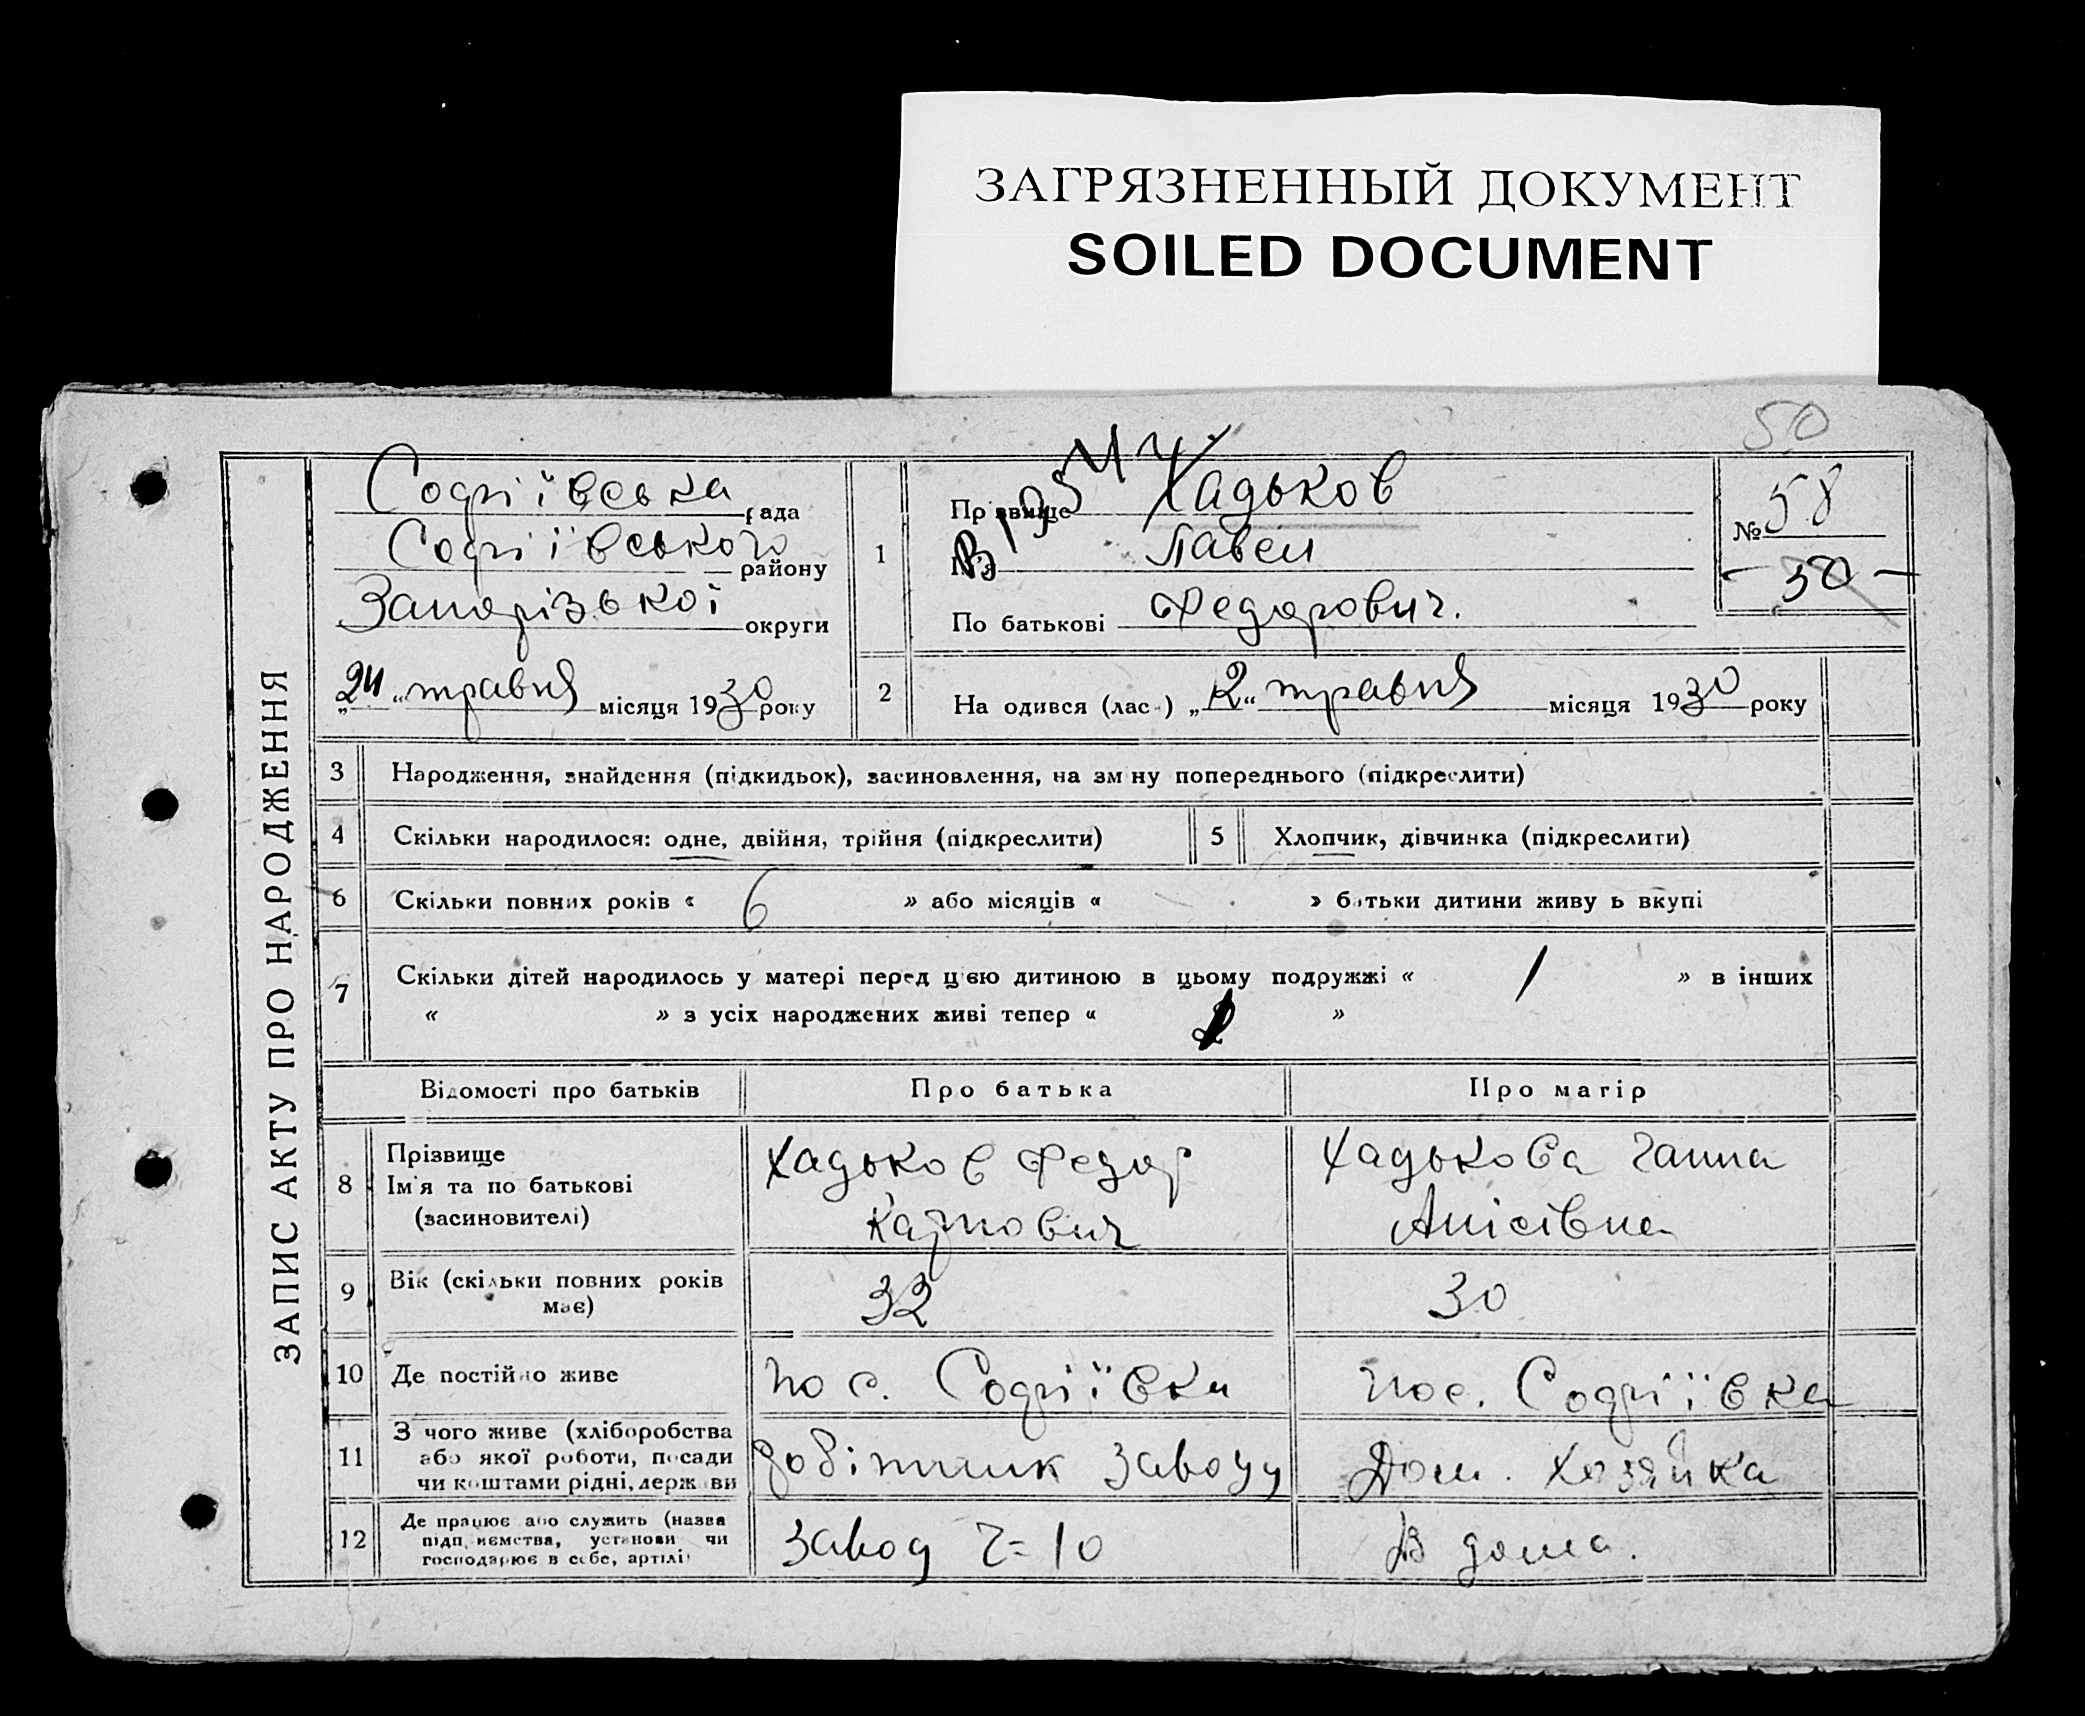 ЗАГРЯЗНЕННЫЙ ДОКУМЕНТ
SOILED DOCUMENT
50
ЗАПИС АКТУ ПРО НАРОДЖЕННЯ
Софіївська рада
Софіївського району
Запорізької округи
"24" травня місяця 1930 року
1
Прізвище Хадьков
Павел
По батькові Федорович.
№ 58
- 50 -
2
На одився (лас-) "2" травня місяця 1930 року
3 Народження, знайдення (підкидьок), засиновлення, на зм ну попереднього (підкреслити)
4 Скільки народилося: одне, двійня, трійня (підкреслити)
5 Хлопчик, дівчинка (підкреслити)
6 Скільки повних років « 6 » або місяців « » батьки дитини живу ь вкупі
7 Скільки дітей народилось у матері перед цією дитиною в цьому подружжі « 1 » в інших
« » з усіх народжених живі тепер « »
Відомості про батьків Про батька Про матір
8 Прізвище
Ім'я та по батькові
(засиновителі)
Хадьков Федор
Карпович
Хадькова Ганна
Анісівна
9 Вік (скільки повних років
має)
32
30
10 Де постійно живе
пос. Софіївка
пос. Софіївка
11 З чого живе (хліборобства
або якої роботи, посади
чи коштами рідні, держави
робітник заводу
Дом. хозяйка
12 Де працює або служить (назва
підп иємства, установи чи
господарює в себе, артілі)
завод Ч=10
В дома.